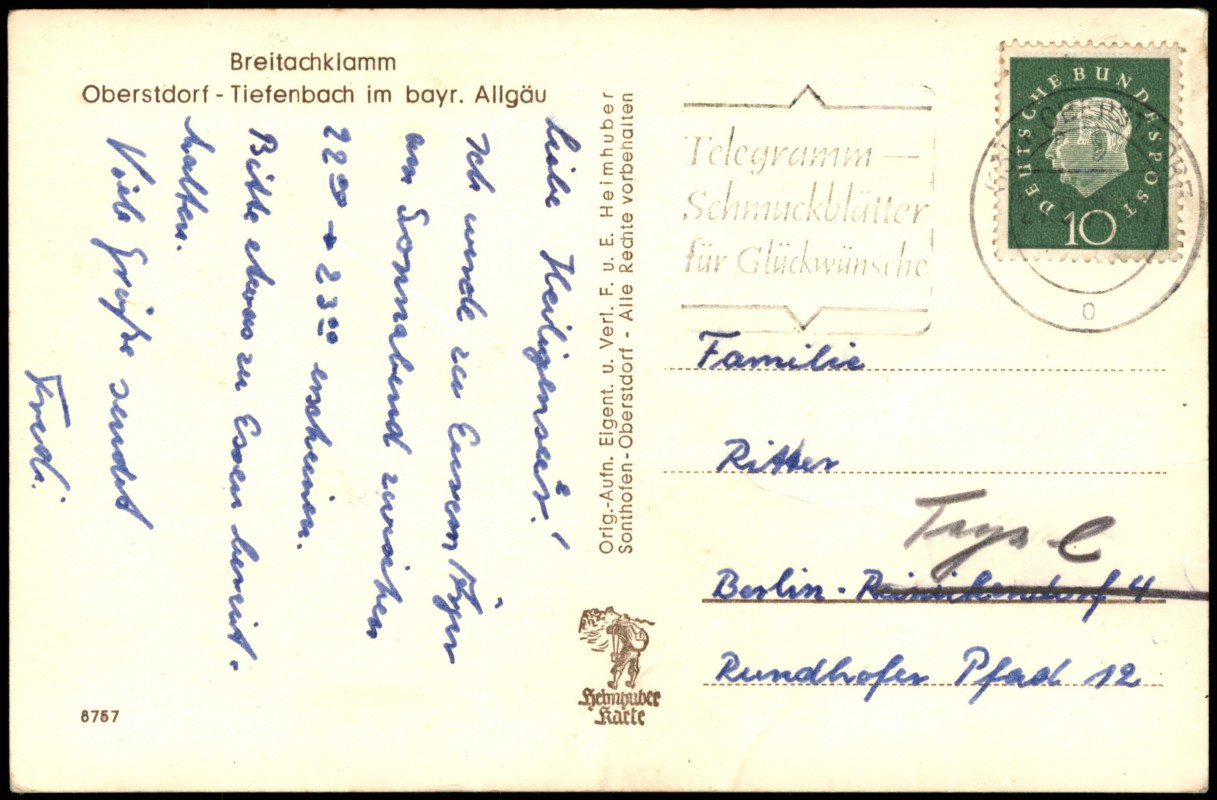 Breitachklamm
Oberstdorf - Tiefenbach im bayr. Allgäu
Liebe Heiligenseer!
Ich werde zu Eurem
am Sonnabend zwischen
22⁰⁰ → 23⁰⁰ erscheinen.
Bitte etwas zu Essen bereit-
halten.
Viele Grüße sendet
Fredi.
8757
Orig.-Aufn. Eigent. u. Verl. F. u. E. Heimhuber
Sonthofen-Oberstdorf - Alle Rechte vorbehalten
Heimhuber
Karte
Telegramm —
Schmuckblätter
für Glückwünsche
DEUTSCHE BUNDESPOST
10
o
Familie
Ritter
Tegel
Berlin - Reinickendorf 4
Rundhofer Pfad 12